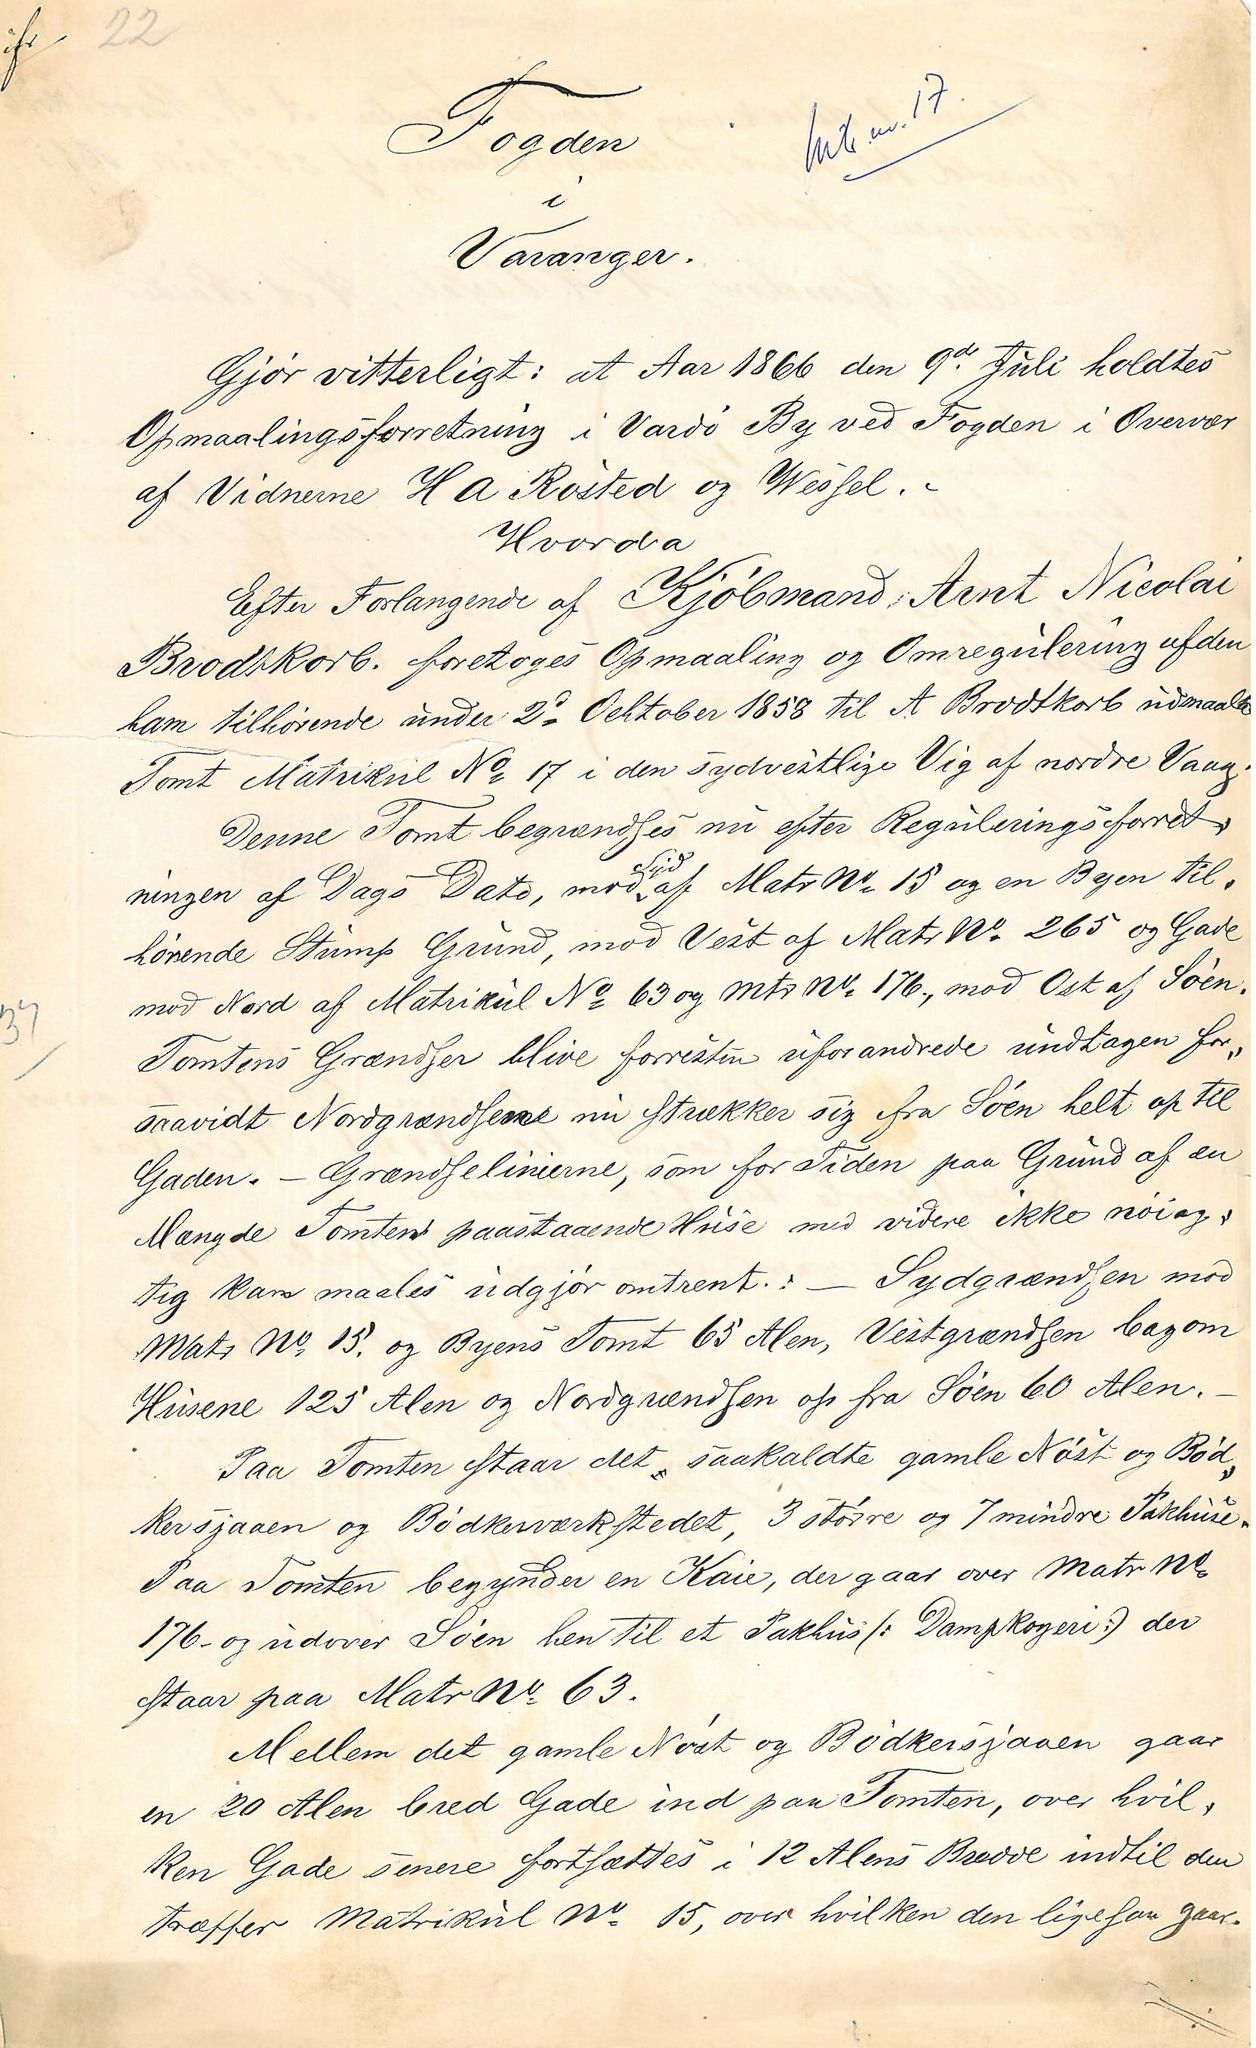 22
Fogden
i
Varanger.
mtr. nr. 17.
Gjör vitterligt: at Aar 1866 den 9de Juli holdtes
Opmaalingsforretning i Vardö By ved Fogden i Overvær
af Vidnerne H A Rösted og Wessel. -
Hvorda
Efter Forlangende af Kjöbmand, Arnt Nicolai
Brodtkorb. foretoges Opmaaling og Omregulering af den
ham tilhörende under 2d. Oektober 1858 til A Brodtkorb udmaalte
Tomt Matrikul No 17 i den sydvestlige Vig af nordre Vaag.
Denne Tomt begrændses nu efter Reguleringsforret,
ningen af Dags Dato, mod Syd af Matr No. 15 og en Byen til,
hörende Stump Grund, mod Vest af Matr No. 265 og Gade
mod Nord af Matrikul No 63 og Mtr No. 176., mod Ost af Söen.
37
Tomtens Grændser blive forresten uforandrede undtagen for„
saavidt Nordgrændsene nu strækker sig fra Söen helt op til
Gaden. - Grændselinierne, som for Tiden paa Grund af en
Mængde Tomten paastaaende Huse med videre ikke nöiag,
tig kan maales udgjör omtrent.: - Sydgrændsen mod
Matr No. 15. og Byens Tomt 65 Alen, Vestgrændsen bagom
Husene 125 Alen og Nordgrændsen op fra Söen 60 Alen. -
Paa Tomten staar det saakaldte gamle Nöst og Böd„
kersjaaen og Bödkerværkstedet, 3 större og 7 mindre Pakhuse.
Paa Tomten begynder en Kaie, der gaar over Matr No.
176- og udover Söen hen til et Pakhus (: Dampkogeri:) der
staar paa Matr No. 63.
Mellem det gamle Nöst og Bödkersjaaen gaar
en 20 Alen bred Gade ind paa Tomten, over hvil,
ken Gade senere fortsættes i 12 Alens Bredde indtil den
træffer Matrikul No. 15, over hvilken den ligesaa gaar.